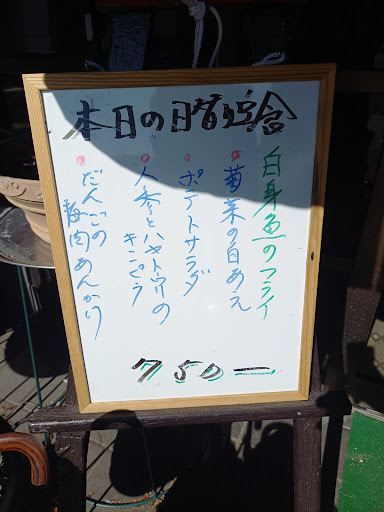 本日の日替定食
白身魚のフライ
・菊菜の白あえ
・ポテトサラダ
・人参とハヤトウリの
キンピラ
・だんごの
梅肉あんかけ
750ー